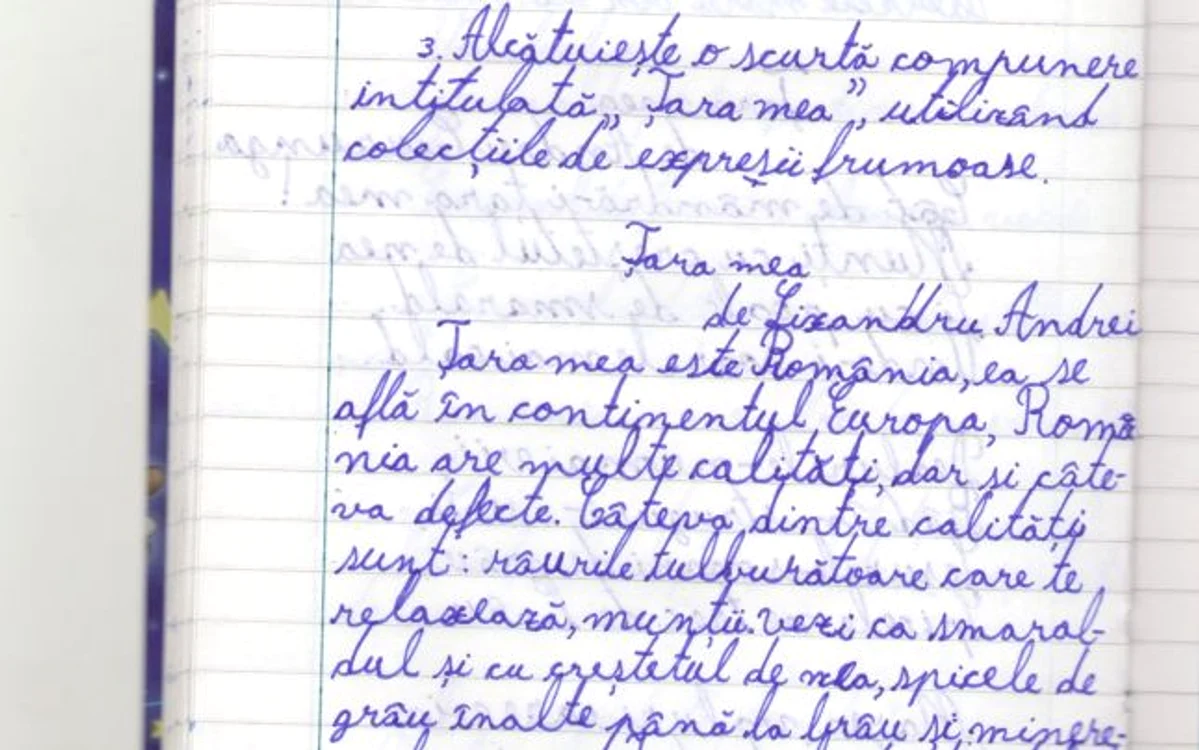 3. Alcătuiește o scurtă compunere
intitulată „Țara mea”, utilizând
colecțiile de expresii frumoase.
Țara mea
de Lixandru Andrei
Țara mea este România, ea se
află în continentul Europa, Româ
nia are multe calități, dar și câte-
va defecte. Câteva dintre calități
sunt: râurile tulburătoare care te
relaxează, munții verzi ca smaral-
dul și cu creștetul de nea, spicele de
grâu înalte până la brâu și minere-